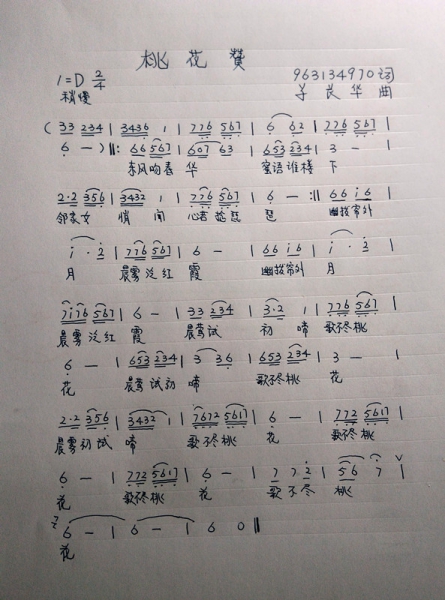 桃花赞
1=D 2/4 963134970词
稍慢 曲
( 33 234 | 3436 1 | 776 567 | 6 62 | 776 567 |
6 - ) ‖: 66 567 | 607 63 | 653 234 | 3 - |
东风吻春 华 蜜语谁楼 下
2·2 356 | 3432 1 | 776 567 | 6 - :‖ 66 i6 |
邻家女 悄 问 琵 琶 幽拔帘外
i · 2 | 776 567 | 6 - | 66 i6 | i · 2 |
月 晨雾泛红 霞 幽拔帘外 月
7i76 567 | 6 - | 33 234 | 3·2 1 | 776 567 |
晨雾泛红 霞 晨莺试 初 啼 歌不尽桃
6 - | 653 234 | 3 36 | 653 234 | 3 - |
花 晨莺试初 啼 歌不尽桃 花
2·2 356 | 3432 1 | 7672 5617 | 6 - | 772 5617 |
晨雾初试 啼 歌不尽桃 花 歌不尽桃
6 - | 772 5617 | 6 - | 7 7 2 | 56 7 |
花 歌不尽桃 花 歌不尽 桃
6 - | 6 - | 6 0 ‖
花